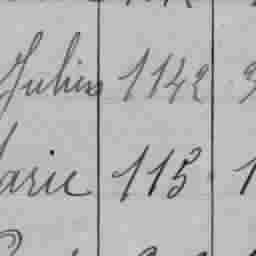 Julien 1142
Marie 115 1